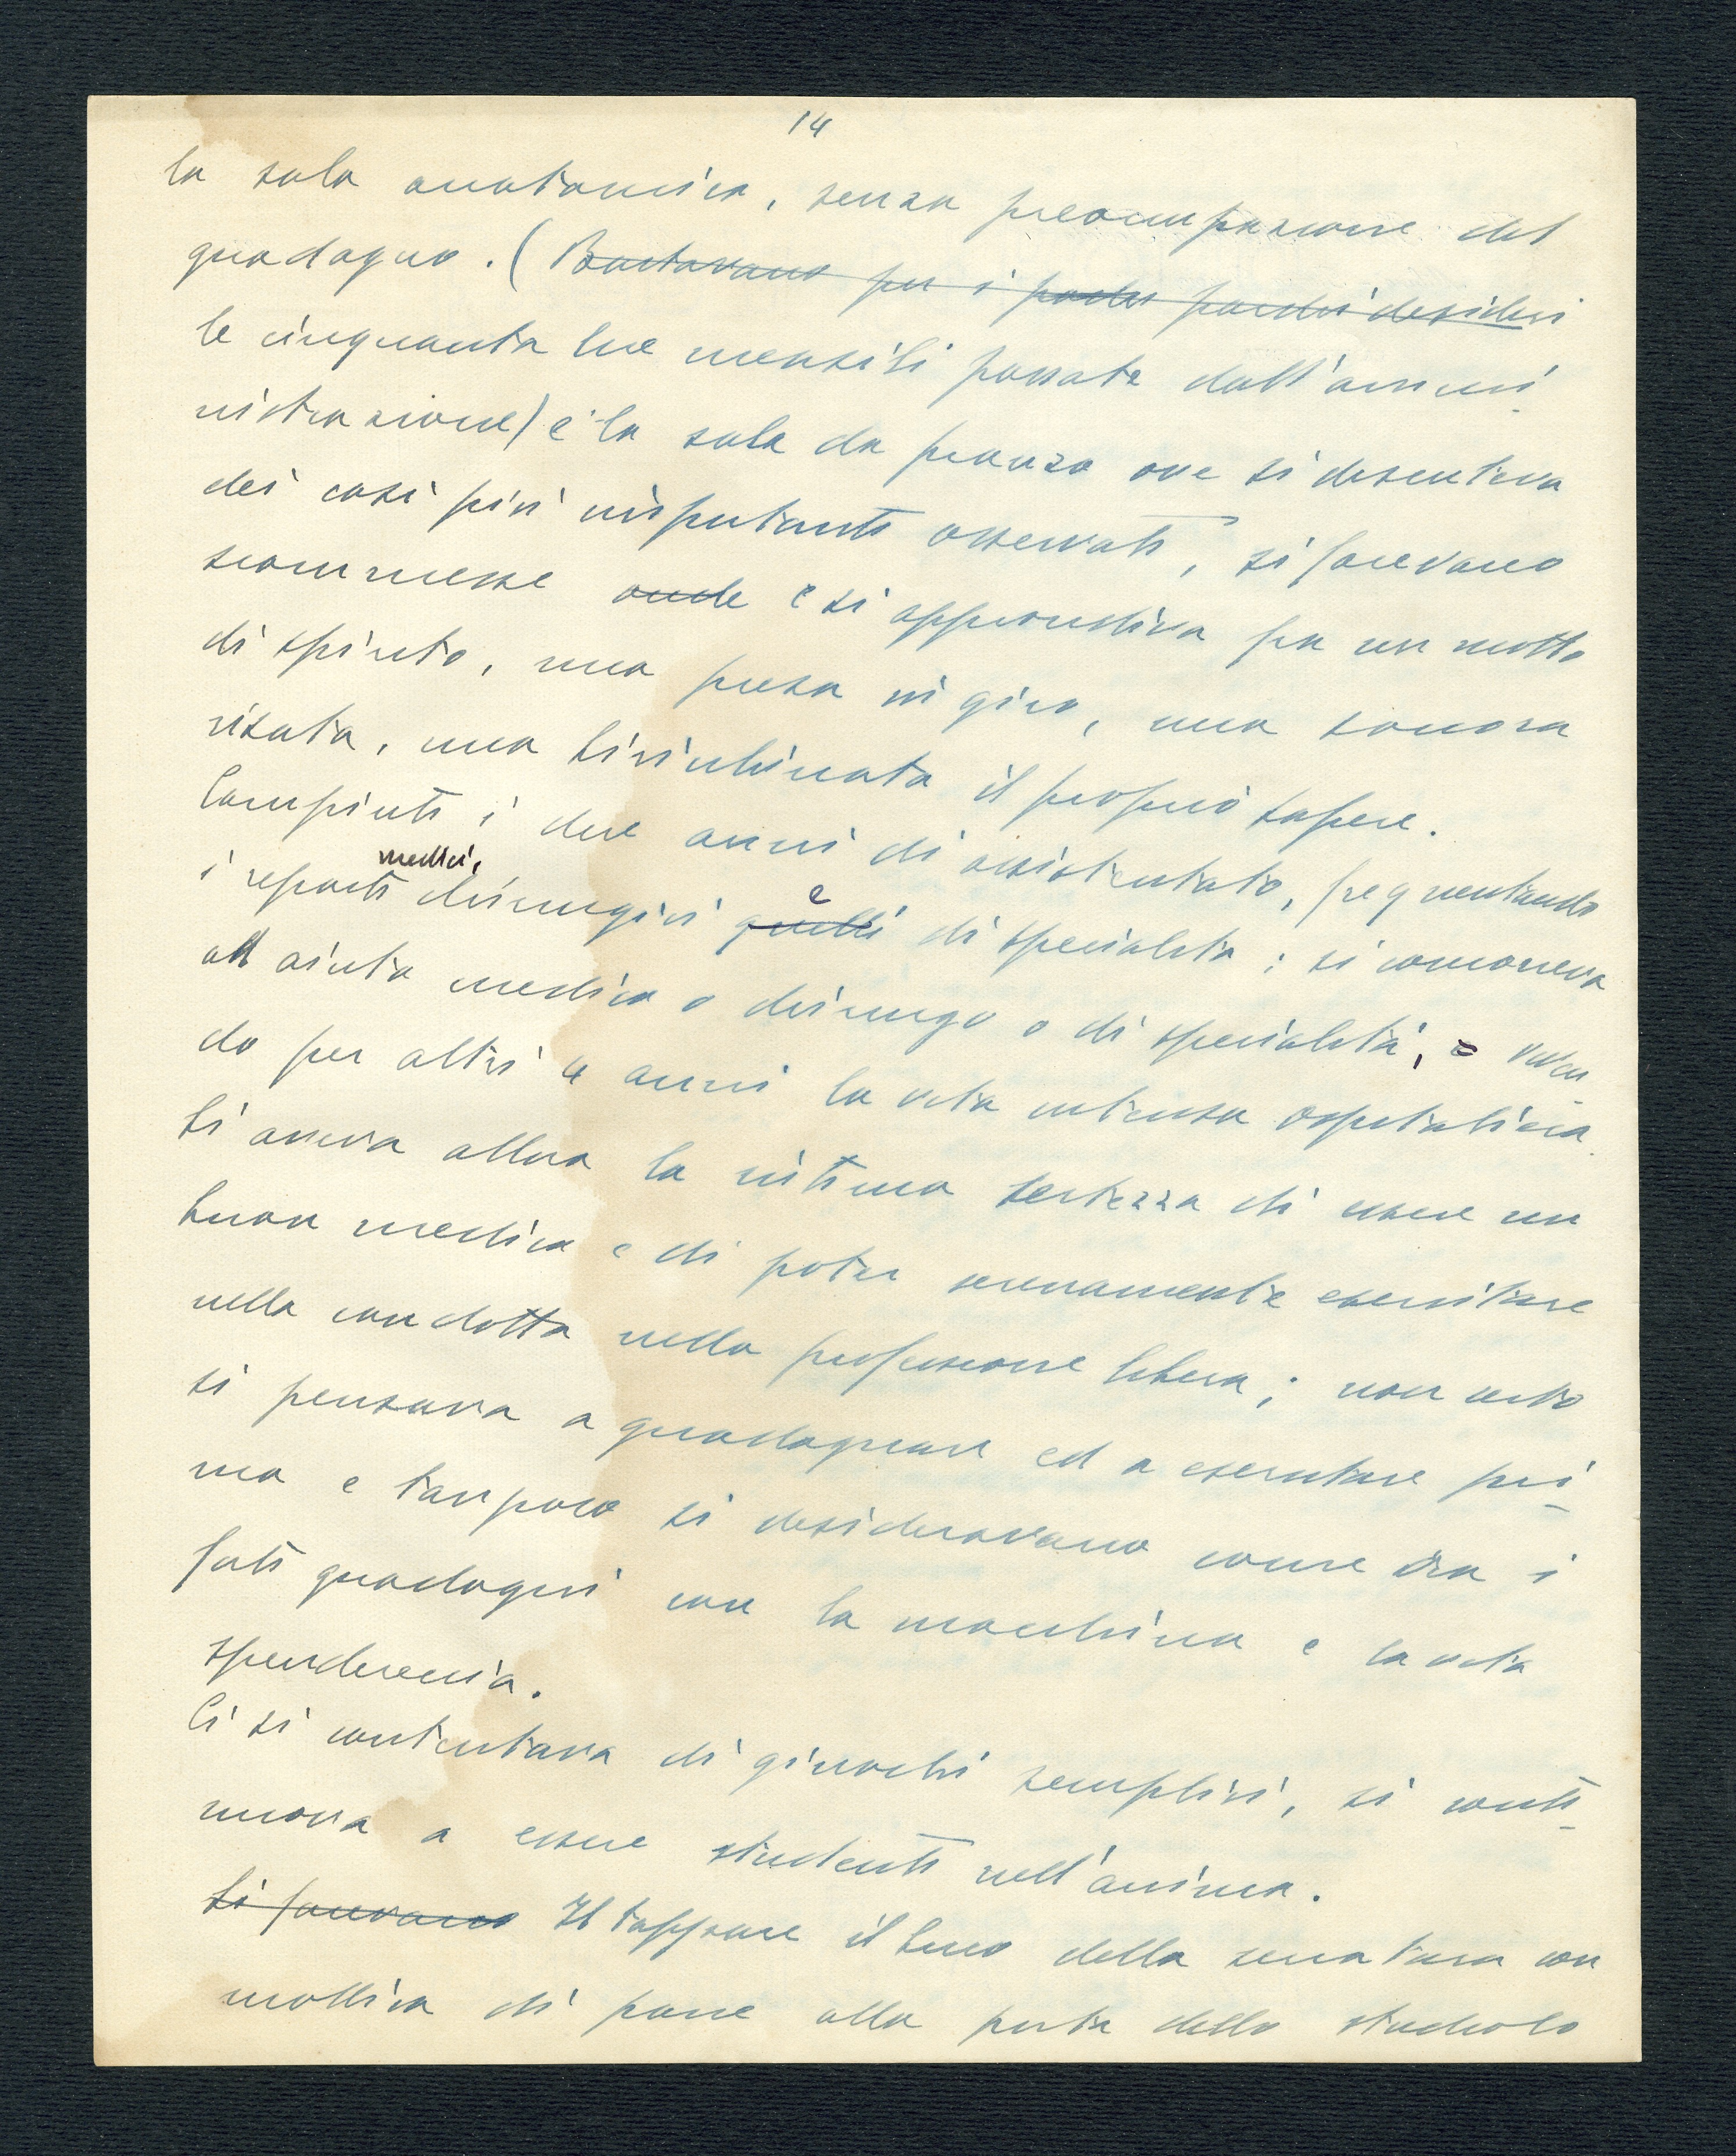 14
la sala anatomica, senza preoccupazione del
guadagno. (Bastavano per i pochi parchi desideri
le cinquanta lire mensili passate dall'ammi-
nistrazione) e la sala da pranzo ove si discuteva
dei casi più importanti osservati, si facevano
scommesse onde e si apprendiva fra un motto
di spirito, una presa in giro, una sonora
risata, una birichinata il proprio sapere.
Compiuti i due anni di assistentato, frequentando
medici,
i reparti chirurgici quelli e di specialità; si concorreva
ad aiuto medico o chirurgo o di specialità, viven-
do per altri 4 anni la vita intensa ospitaliera.
Si aveva allora la intima certezza di essere un
buon medico e di poter serenamente esercitare
nella condotta nella professione libera; non certo
si pensava a guadagnare ed a esercitare pri-
ma e tanpoco si desideravano come ora i
forti guadagni con la macchina e la vita
spendereccia.
Ci si contentava di giuochi semplici, si conti-
nuava a essere studenti nell'anima.
Si facevano Il tappare il buco della serratura con
mollica di pane alla porta dello studiolo